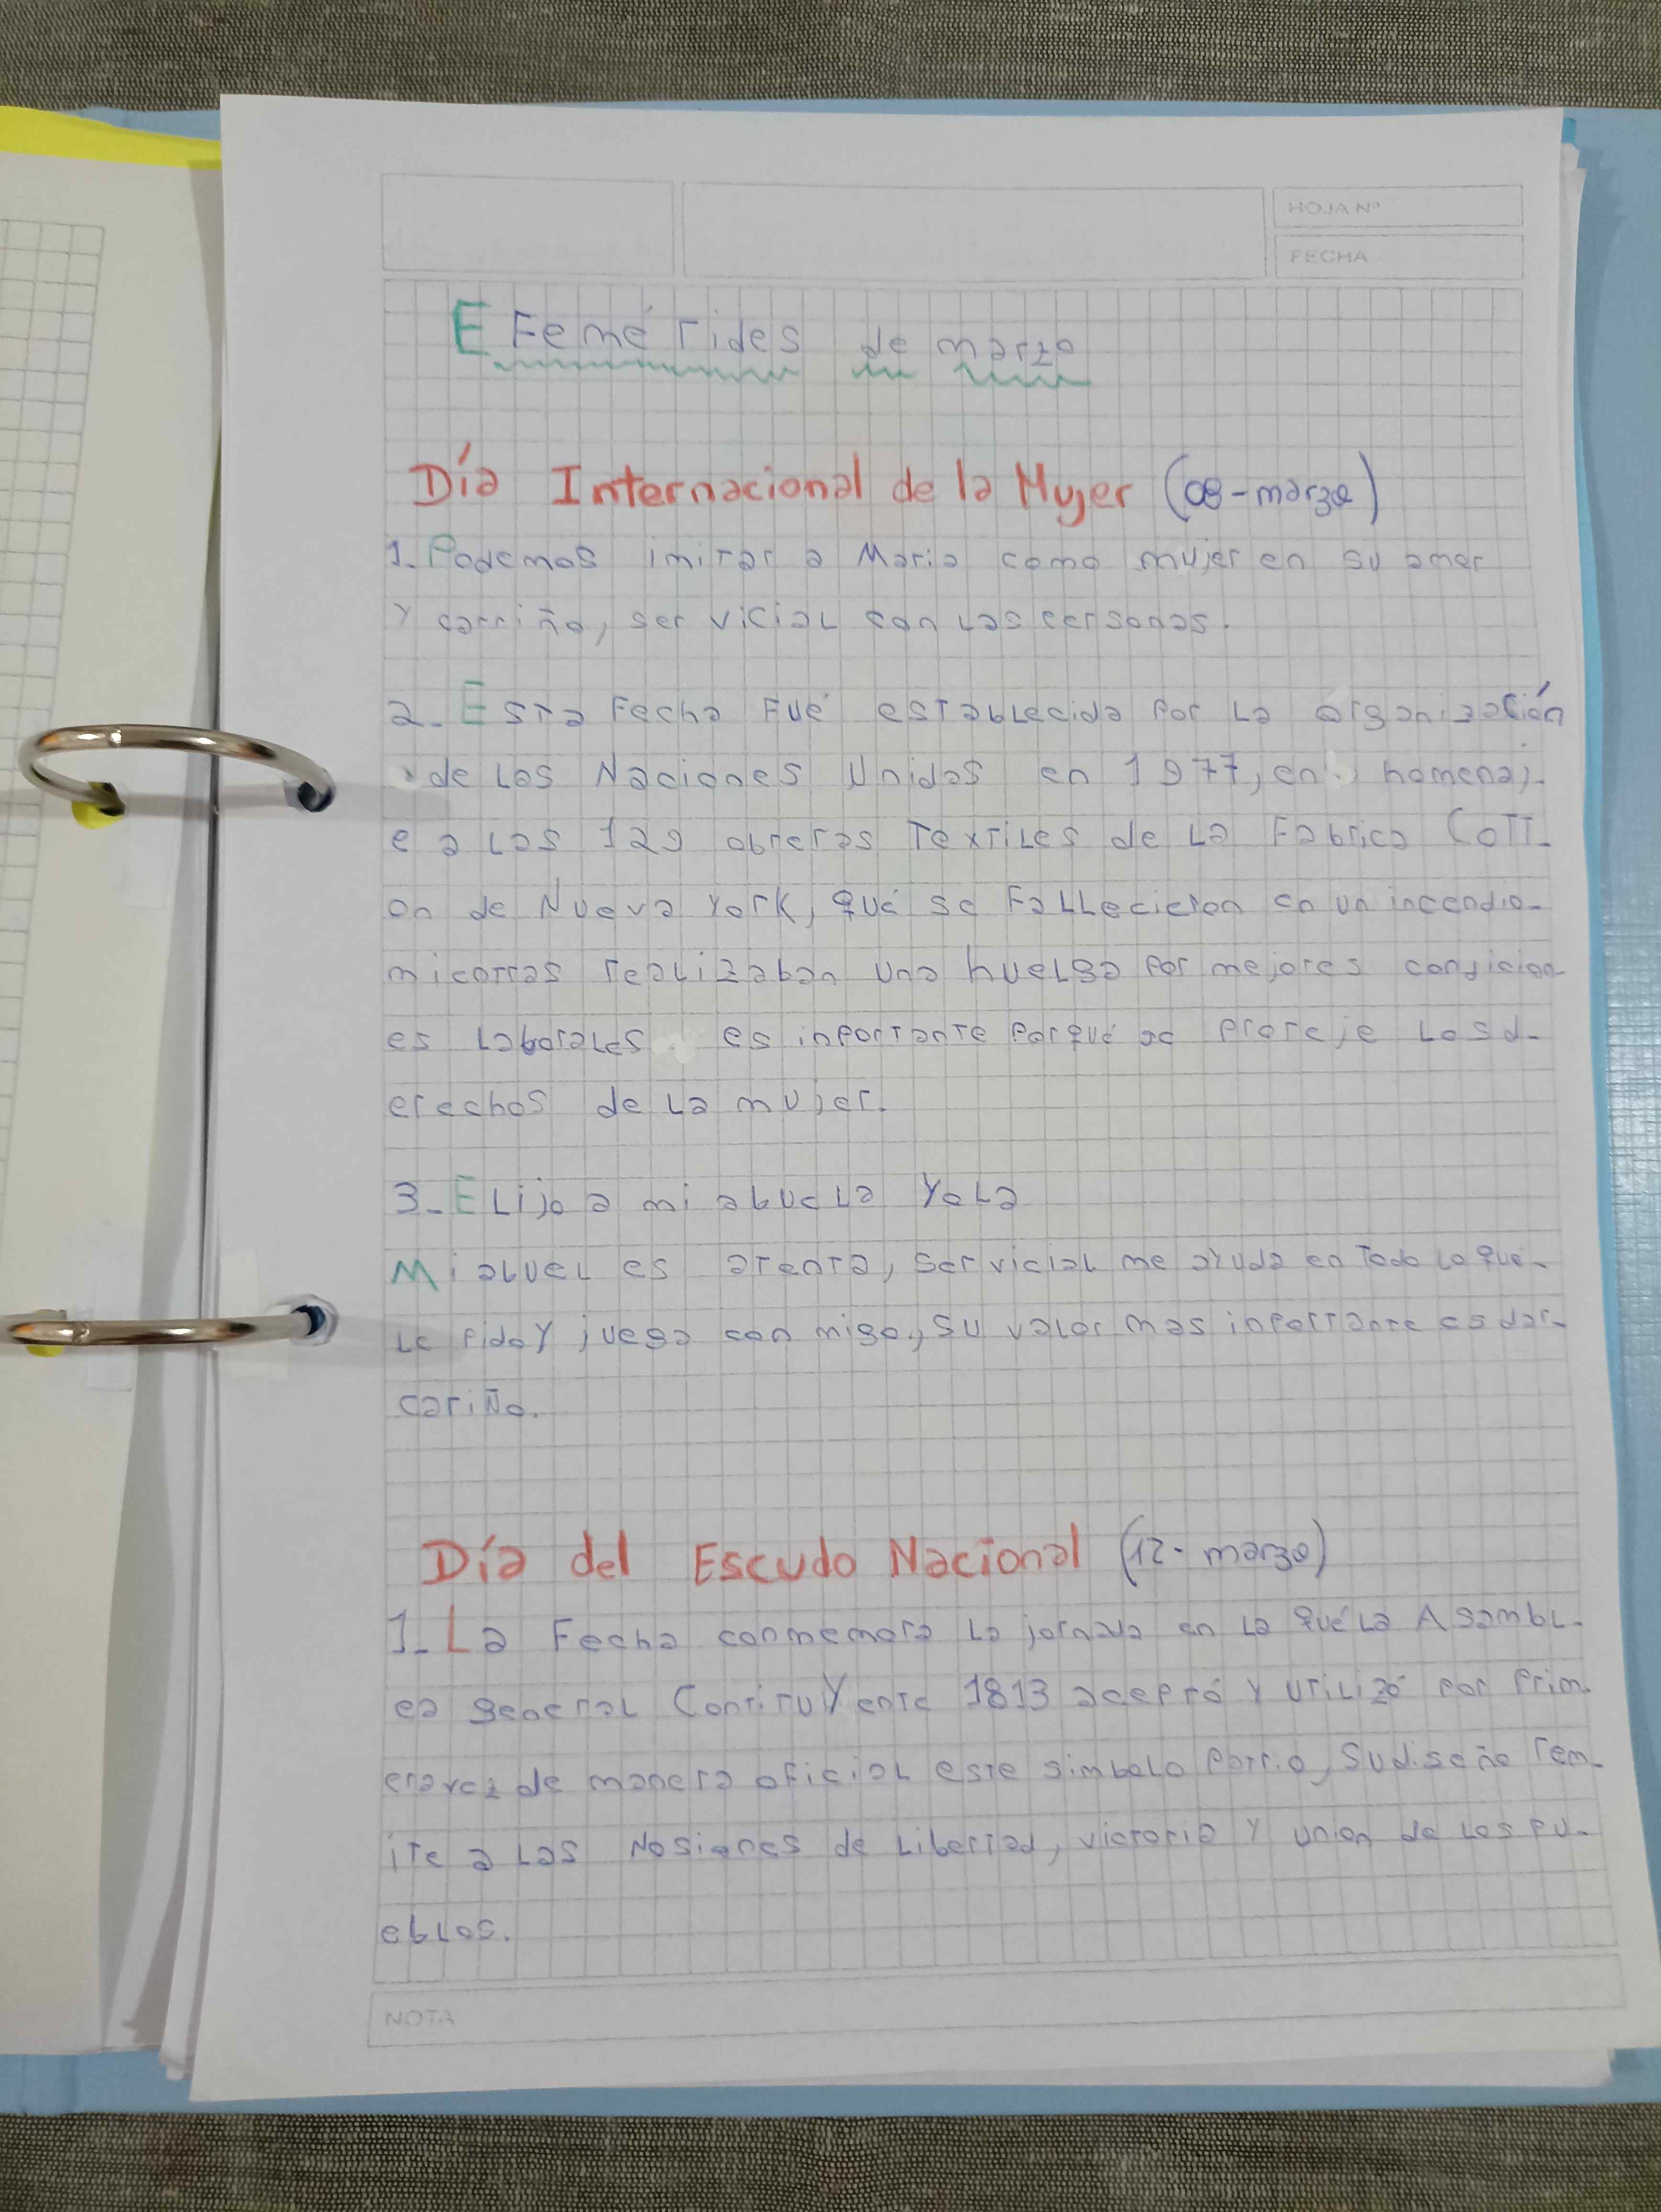 HOJA Nº
FECHA
EFemérides de marzo
Día Internacional de la Mujer (08-marzo)
1. Podemos imitar a Maria como mujer en su amor
Y carriño, ser vicial con Las personas.
2- Esta Fecha Fué establecida por La organización
de Los Naciones Unidas en 1977, en homenaj-
e a Las 129 obreras Textiles de La Fabrica Cott-
on de Nueva York, qué se FalleCieron en un incendio-
mientras realizaban una huelga por mejores condicion-
es Laborales es inportante porqué se proteje Los d-
erechos de La mujer.
3- Elijo a mi abuela Yola
Mi abuel es atenta, ser vicial me ayuda en Todo Lo qué-
Le pido y juega con migo, su valor mas inportante es dar-
cariño.
Día del Escudo Nacional (12-marzo)
1- La Fecha conmemora La jornada en La qué La Asambl-
ea general Contituyente 1813 aceptó y utilizó por Prim-
eravez de manera oficial este simbolo Patrio, Su diseño rem-
ite a Las Nosiones de Libertad, victoria y union de Los pu-
ebLos.
NOTA